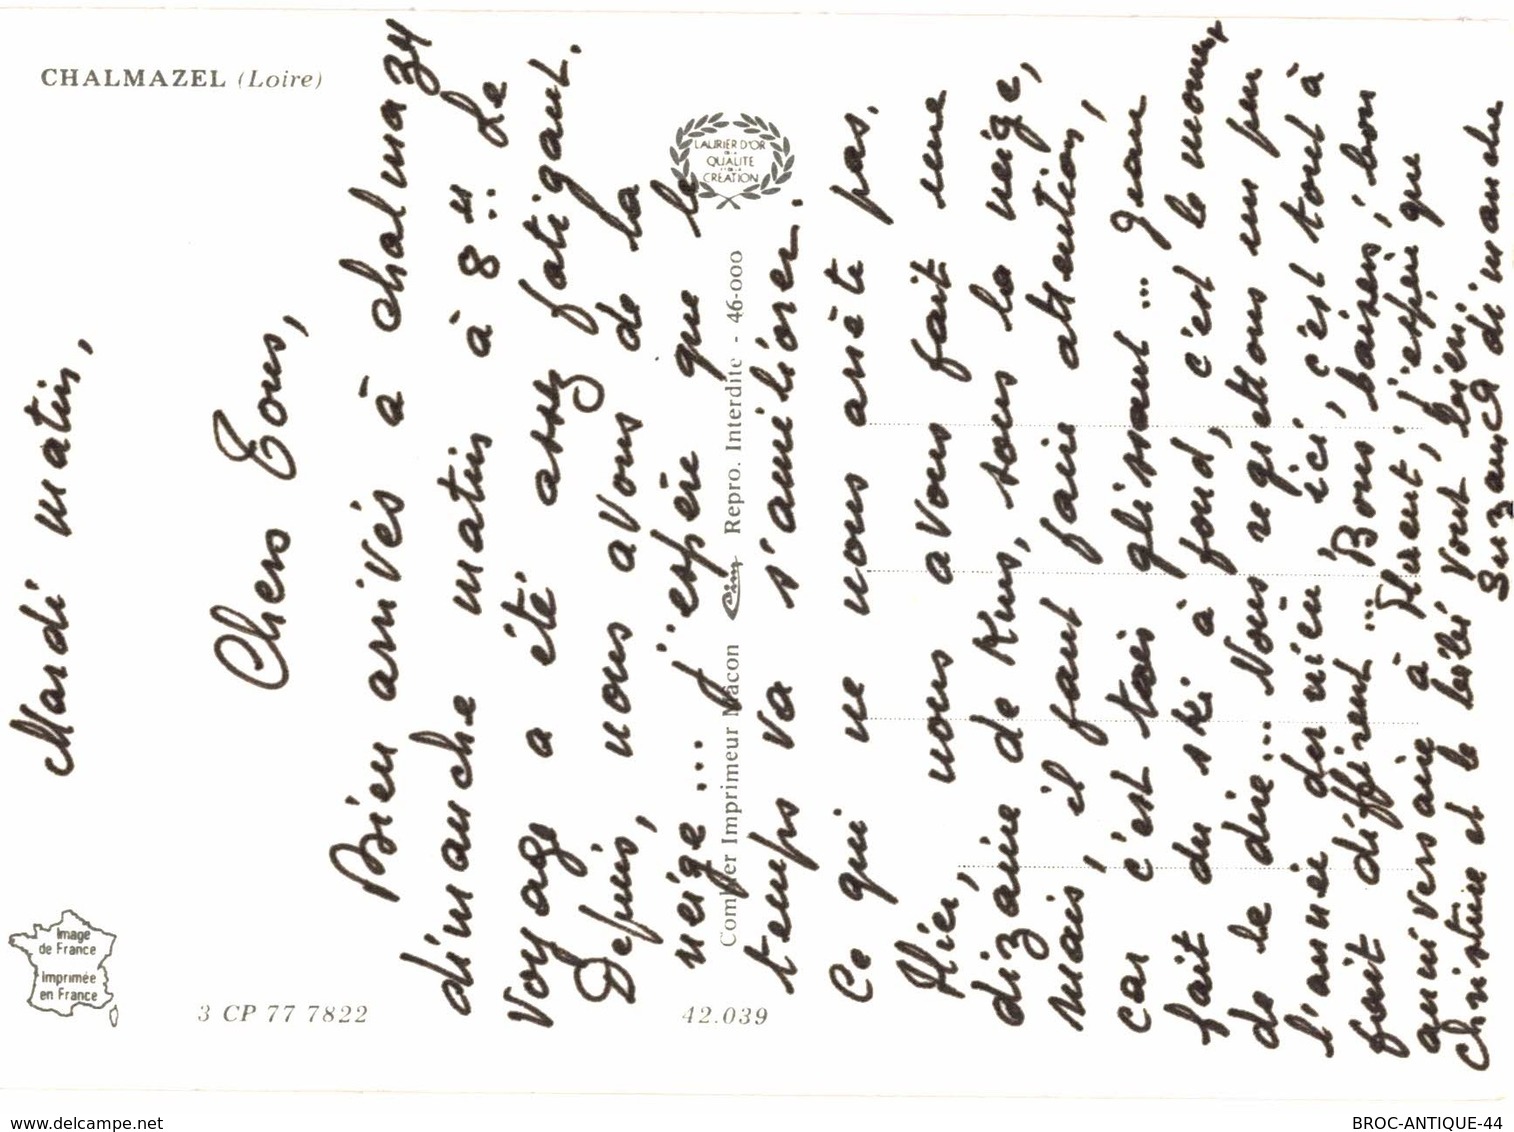 CHALMAZEL (Loire)
Mardi matin,
Chers Tous,
Bien arrivés à chalmazel
dimanche matin à 8H. Le
voyage a été assez fatigant.
Depuis, nous avons de la
neige... j'espère que le
temps va s'améliorer.
Ce qui ne nous arrête pas.
Hier, nous avons fait une
dizaine de Kms, sous la neige,
mais, il faut faire attention,
car c'est très glissant... quan
fait du ski à fond, c'est le moment
de le dire... Nous regrettons un peu
l'année dernière ici, c'est tout à
fait différent... Bons baisers, bon
anniversaire à Florent, j'espère que
Christine et le bébé vont bien.
dimanche
Image
de France
Imprimée
en France
3 CP 77 7822
42.039
Combier Imprimeur Mâcon Cim Repro. Interdite - 46-000
LAURIER D'OR
DE LA
QUALITÉ
ET DE LA
CRÉATION
www.delcampe.net
BROC-ANTIQUE-44